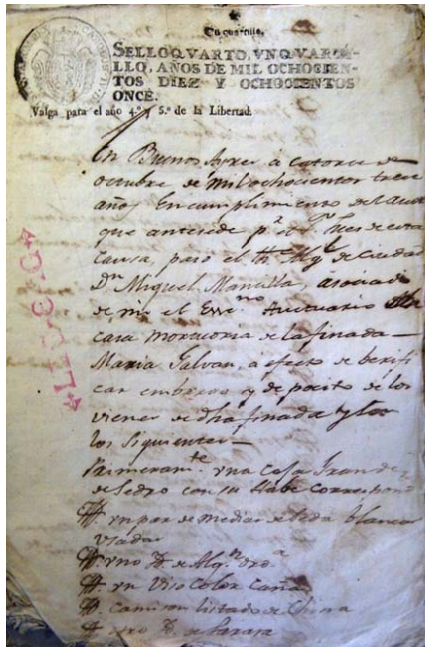 Un quartillo.
SELLO QVARTO, VN QVARTI-
LLO, AÑOS DE MIL OCHOCIEN-
TOS DIEZ Y OCHOCIENTOS
ONCE.
Valga para el año 4.º y 5.º de la Libertad.
En Buenos Ayres à catorce de
octubre de mil ochocientos trece
años En cumplimiento del auto
que antecede p.r el S.r Juez de esta
causa, pasó el Th.e Alg.l de ciudad
D.n Miguel Mansilla, asociado
de mi el Ess.no Actuario
casa mortuoria de la finada
Maria Galvan, a efecto de berifi
car embargo y deposito de los
vienes de dha finada y
los siguientes
Primeram.te vna Caja Grande
de Sedro con su llabe correspond
It. vn par de medias de seda blancas
vsadas
It. vno D. de Alg.n ord.o
It. vn Viso Color Caña
It. camison listado de China
It. otro D. de Saraza